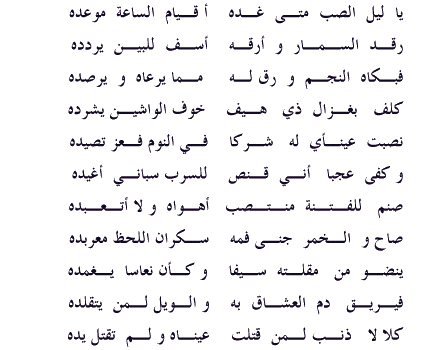 يا ليل الصب متى غده أقيام الساعة موعده
رقد السمار و أرقه أسف للبين يردده
فبكاه النجم و رق له مما يرعاه و يرصده
كلف بغزال ذي هيف خوف الواشين يشرده
نصبت عيناي له شركا في النوم فعز تصيده
و كفى عجبا أني قنص للسرب سباني أغيده
صنم للفتنة منتصب أهواه و لا أتعبده
صاح و الخمر جنى فمه سكران اللحظ معربده
ينضو من مقلته سيفا و كأن نعاسا يغمده
فيريق دم العشاق به و الويل لمن يتقلده
كلا لا ذنب لمن قتلت عيناه و لم تقتل يده